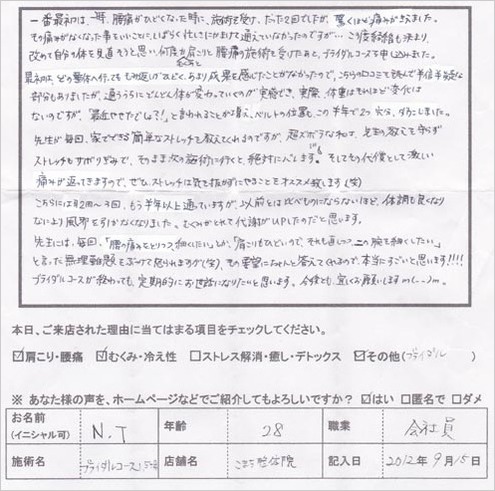 一番最初は、一昨年、腰痛がひどくなった時に、施術を受け、たった2回でしたが、驚くほど痛みが取れました。
その痛みがなくなった事をいいことに、しばらく忙しさにかまけて通えていなかったのですが…、こちら結婚も決まり、
改めて自分の体を見直そうと思い、何度か肩こりと腰痛の施術を受けたあと、ブライダルコースを申し込みました。
最初は、どの整体へ行ってももみ返しがひどく、あまり成果を感じたことがなかったので、こちらの口コミを読んで半信半疑な
部分もありましたが、通ううちにどんどん体が変わっていくのが実感でき、実際、体重はそれほど変化は
ないのですが、「最近やせたでしょ?!」と言われることが増え、ベルトの位置も、この半年で2つ穴分、ダウンしました。
先生が毎回、家でできる簡単なストレッチを教えてくれるのですが、超ズボラな私は、先生の教えを守らず
ストレッチもサボりぎみで、そのまま次の施術に行くと絶対にバレます。そしてその代償として激しい
痛みが返ってきますので、ぜひ、ストレッチは気を抜かずにやることをオススメ致します(笑)
こちらには月2回～3回、もう半年以上通っていますが、以前とは比べものにならないほど、体調も良くなり
なにより風邪を引かなくなりました。むくみがとれて代謝がUPしたのだと思います。
先生には、毎回、「腰の痛みをとりつつ細くしたい」とか、「肩こりもひどいので、それも直しつつ二の腕を細くしたい。」
と言った無理難題をぶつけて怒られますが(笑)、その要望にちゃんと答えてくれるので、本当にすごいと思います!!!!
ブライダルコースが終わっても、定期的にお世話になりたいと思います。今後とも、宜しくお願いしますm(_ _)m
本日、ご来店された理由に当てはまる項目をチェックしてください。
☑肩こり・腰痛 ☑むくみ・冷え性 □ストレス解消・癒し・デトックス ☑その他(ブライダル )
※ あなた様の声を、ホームページなどでご紹介してもよろしいですか? ☑はい □匿名で □ダメ
お名前 (イニシャル可) N.T 年齢 28 職業 会社員
施術名 ブライダルコース 店舗名 こまち整体院 記入日 2012年9月15日